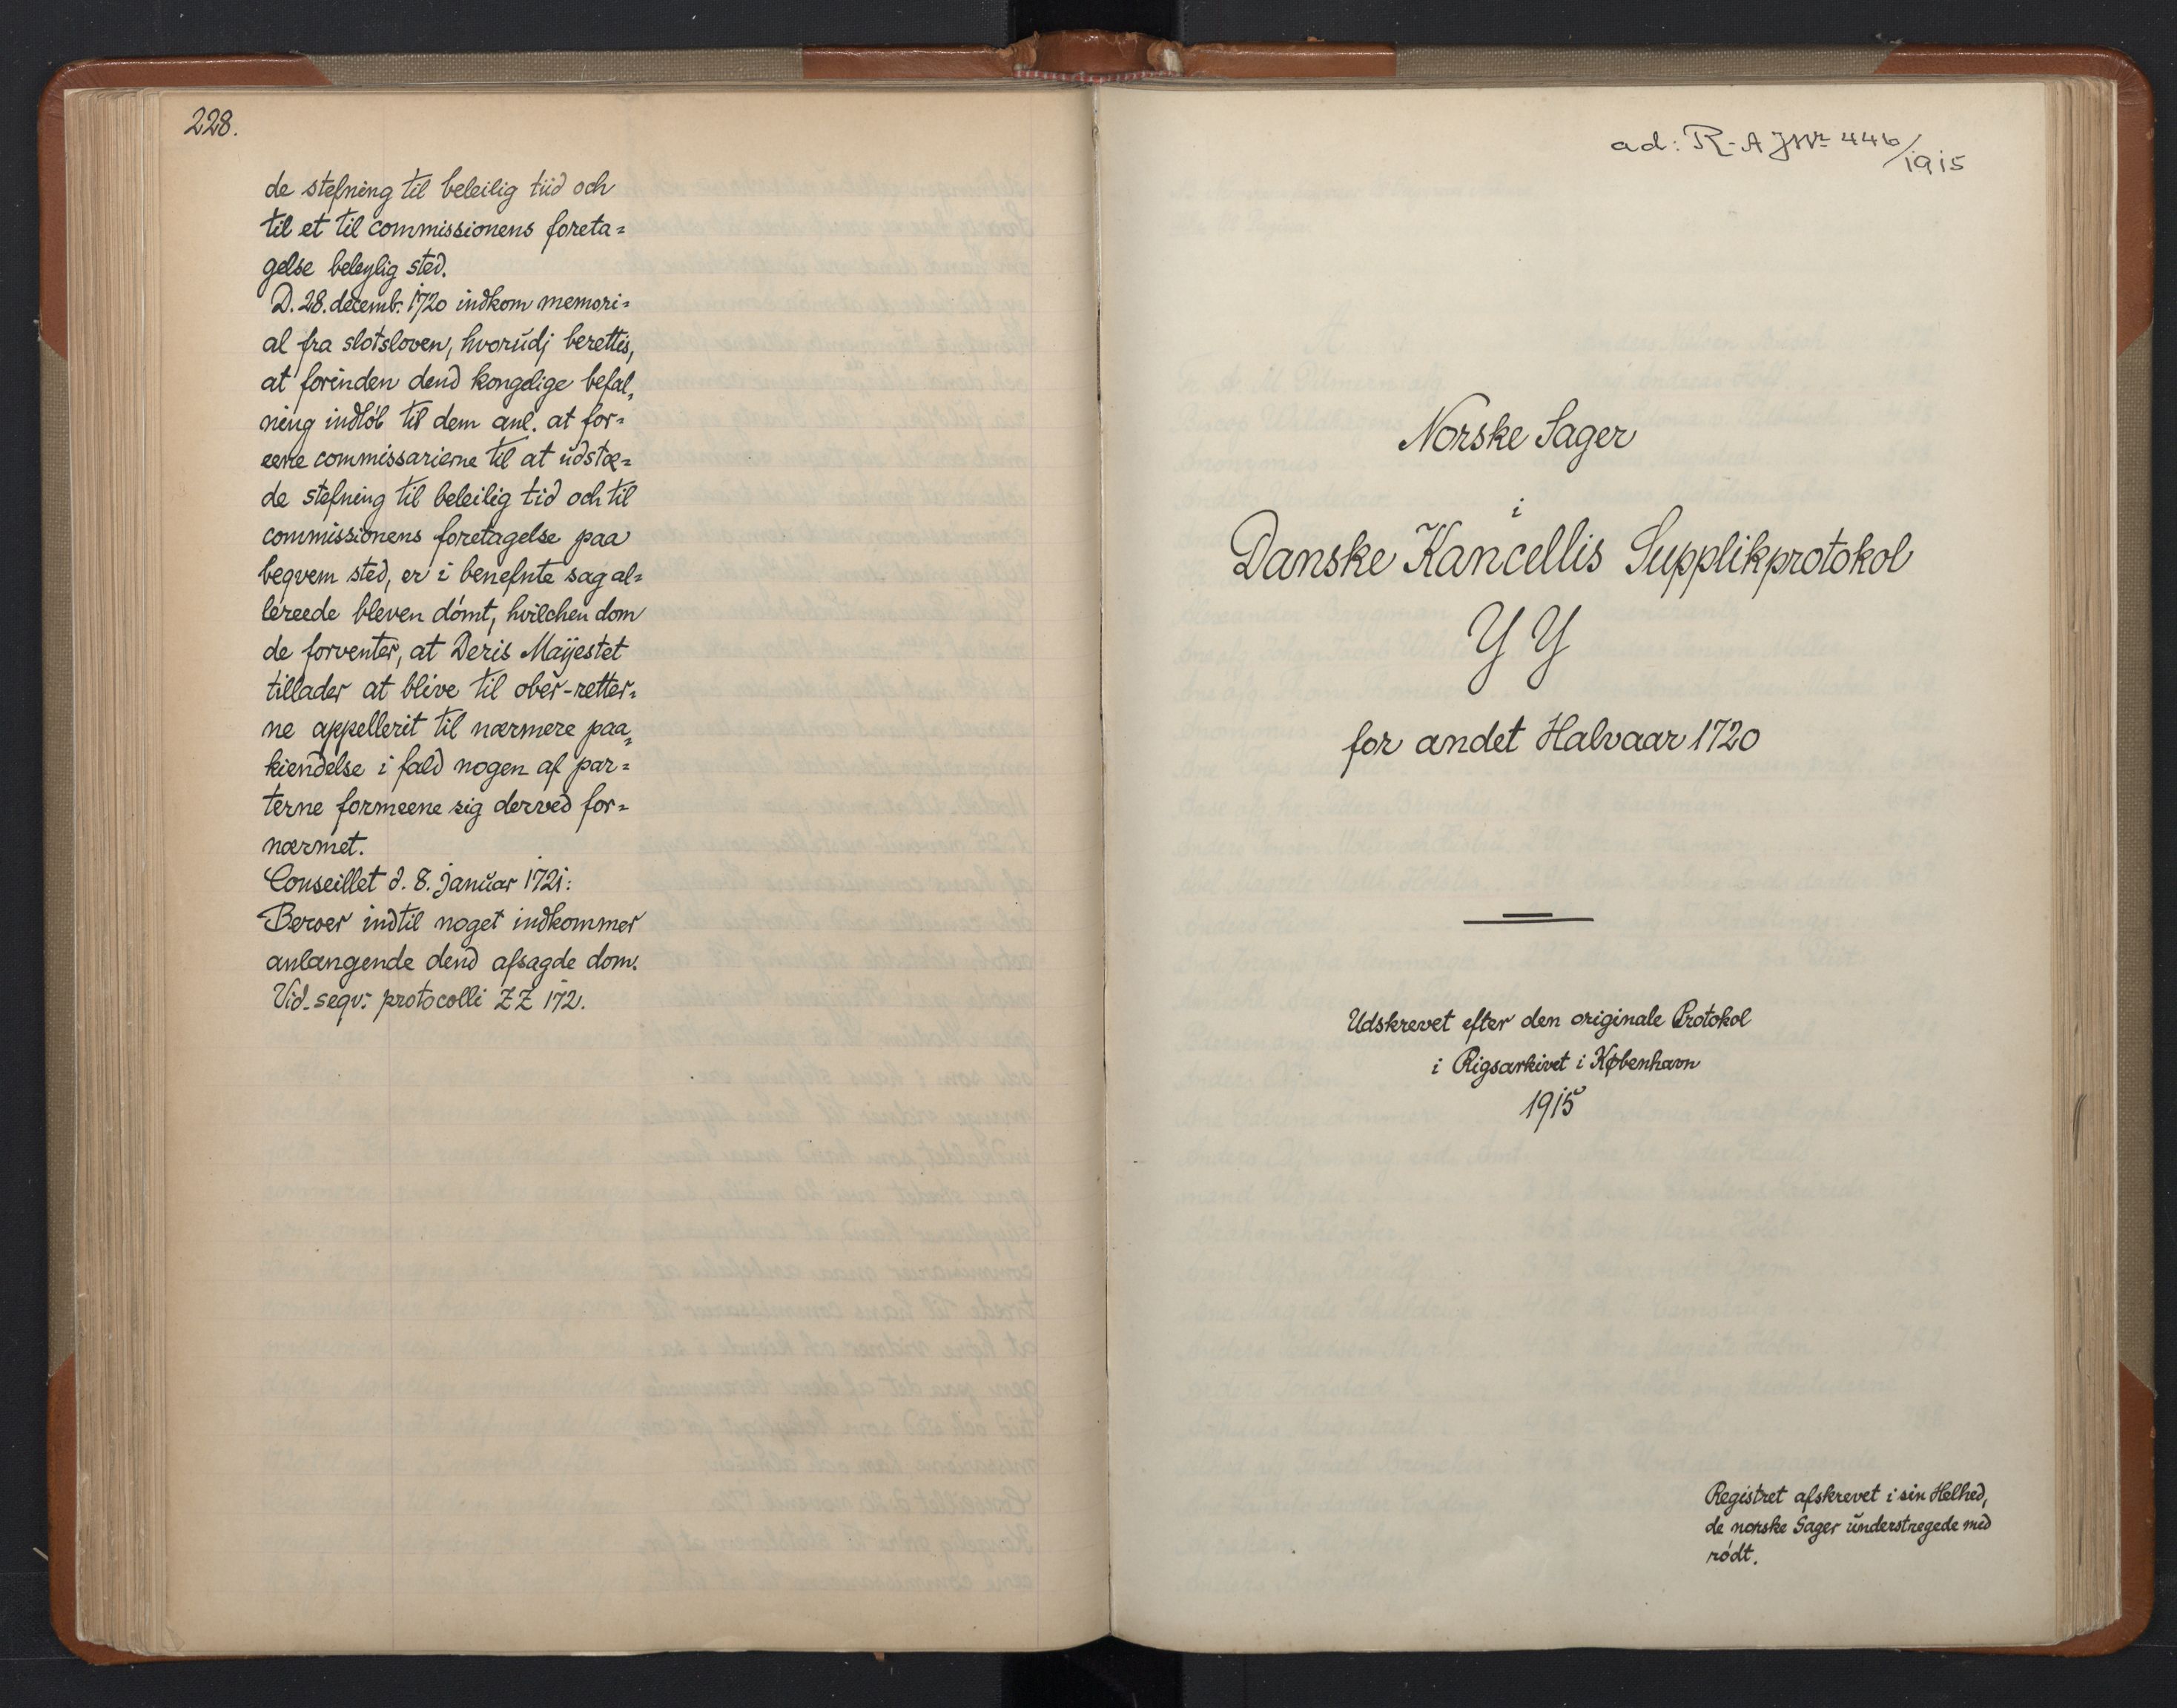 228.
de stefning til beleilig tiid och
til et til commissionens foreta=
gelse beleylig sted.
D. 28. decemb. 1720 indkom memori=
al fra slotsloven, hvorudj berettis,
at forinden dend kongelige befal,
ning indløb til dem anl. at for=
eene commissarierne til at udstæ=
de stefning til beleilig tid och til
commissionens foretagelse paa
beqvem sted, er i benefnte sag al=
lereede bleven dømt, hvilchen dom
de forventer, at Deris Maÿestet
tillader at blive til ober-retter=
ne appellerit til nærmere paa,
kiendelse i fald nogen af par=
terne formeene sig derved for=
nærmet.
Conseillet d. 8. januar 1721:
Beroer indtil noget indkommer
anlangende dend afsagde dom.
Vid. seqv: protocolli ZZ 172.
ad: R-A J№ 446/1915
Norske Sager
i
Danske Kancellis Supplikprotokol
YY
for andet Halvaar 1720
Udskrevet efter den originale Protokol
i Rigsarkivet i København
1915
Registret afskrevet i sin Helhed,
de norske Sager understregede med
rødt.